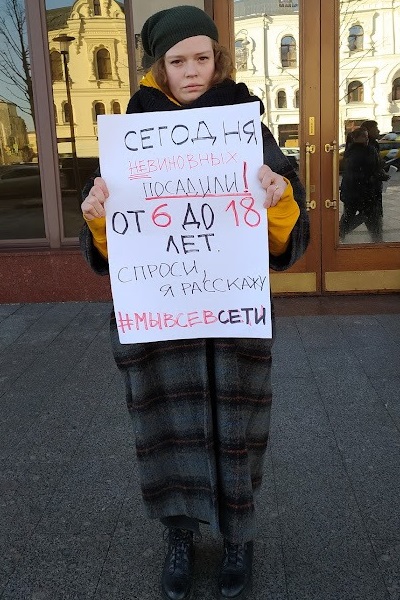 СЕГОДНЯ
НЕВИНОВНЫХ
ПОСАДИЛИ!
ОТ 6 ДО 18
ЛЕТ.
СПРОСИ,
Я РАССКАЖУ
#МЫВСЕВСЕТИ